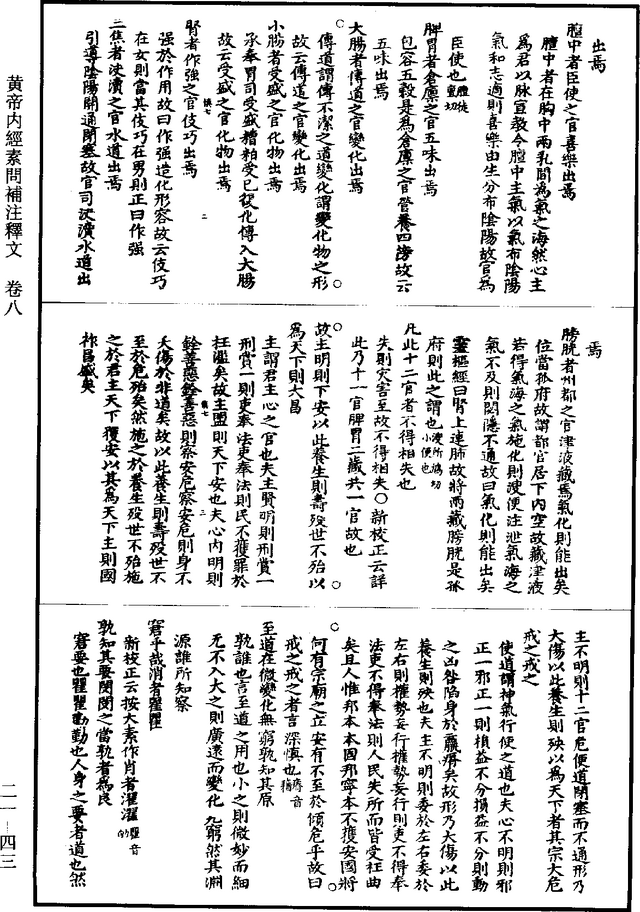 黄帝内經素問補注釋文　卷八
出焉
膻中者臣使之官喜樂出焉
膻中者在胸中兩乳間為氣之海然心主
為君以脉宣教令膻中主氣以氣布陰陽
氣和志適則喜樂由生分布陰陽故官為
臣使也
脾胃者倉廩之官五味出焉
包容五穀是為倉廩之官營養四傍故云
五味出焉
大腸者傳道之官變化出焉
傳道謂傳不潔之道變化謂變化物之形
故云傳道之官變化出焉
小腸者受盛之官化物出焉
承奉胃司受盛糟粕受已復化傳入大腸
故云受盛之官化物出焉
腎者作强之官伎巧出焉
强於作用故曰作强造化形容故云伎巧
在女則當其伎巧在男則正曰作强
三焦者決瀆之官水道出焉
引導陰陽開通閉塞故官司決瀆水道出
焉
膀胱者州都之官津液藏焉氣化則能出矣
位當孤府故謂都官居下内空故藏津液
若得氣海之氣施化則溲便注泄氣海之
氣不及則閟隱不通故曰氣化則能出矣
靈樞經曰腎上連肺故將兩藏膀胱是孤
府則此之謂也
凡此十二官者不得相失也
失則灾害至故不得相失○新校正云詳
此乃十一官脾胃二藏共一官故也
故主明則下安以此養生則壽歿世不殆以
為天下則大昌
主謂君主心之官也夫主賢明則刑賞一
刑賞一則吏奉法吏奉法則民不獲罪於
枉濫矣故主明則天下安也夫心内明則
銓善惡銓善惡則察安危察安危則身不
夭傷於非道矣故以此養生則壽歿世不
至於危殆矣然施之於養生歿世不殆施
之於君主天下獲安以其為天下主則國
祚昌盛矣
主不明則十二官危使道閉塞而不通形乃
大傷以此養生則殃以為天下者其宗大危
戒之戒之
使道謂神氣行使之道也夫心不明則邪
正一邪正一則損益不分損益不分則動
之凶咎陷身於羸瘠矣故形乃大傷以此
養生則殃也夫主不明則委於左右委於
左右則權勢妄行權勢妄行則吏不得奉
法吏不得奉法則人民失所而皆受枉曲
矣且人惟邦本本固邦寧本不獲安國將
何有宗廟之立安有不至於傾危乎故曰
戒之戒之者言深慎也
至道在微變化無窮孰知其原
孰誰也言至道之用也小之則微妙而細
无不入大之則廣遠而變化无窮然其淵
源誰所知察
窘乎哉消者瞿瞿
新校正云按太素作肖者濯濯
孰知其要閔閔之當孰者為良
窘要也瞿瞿勤勤也人身之要者道也然
二一—四三